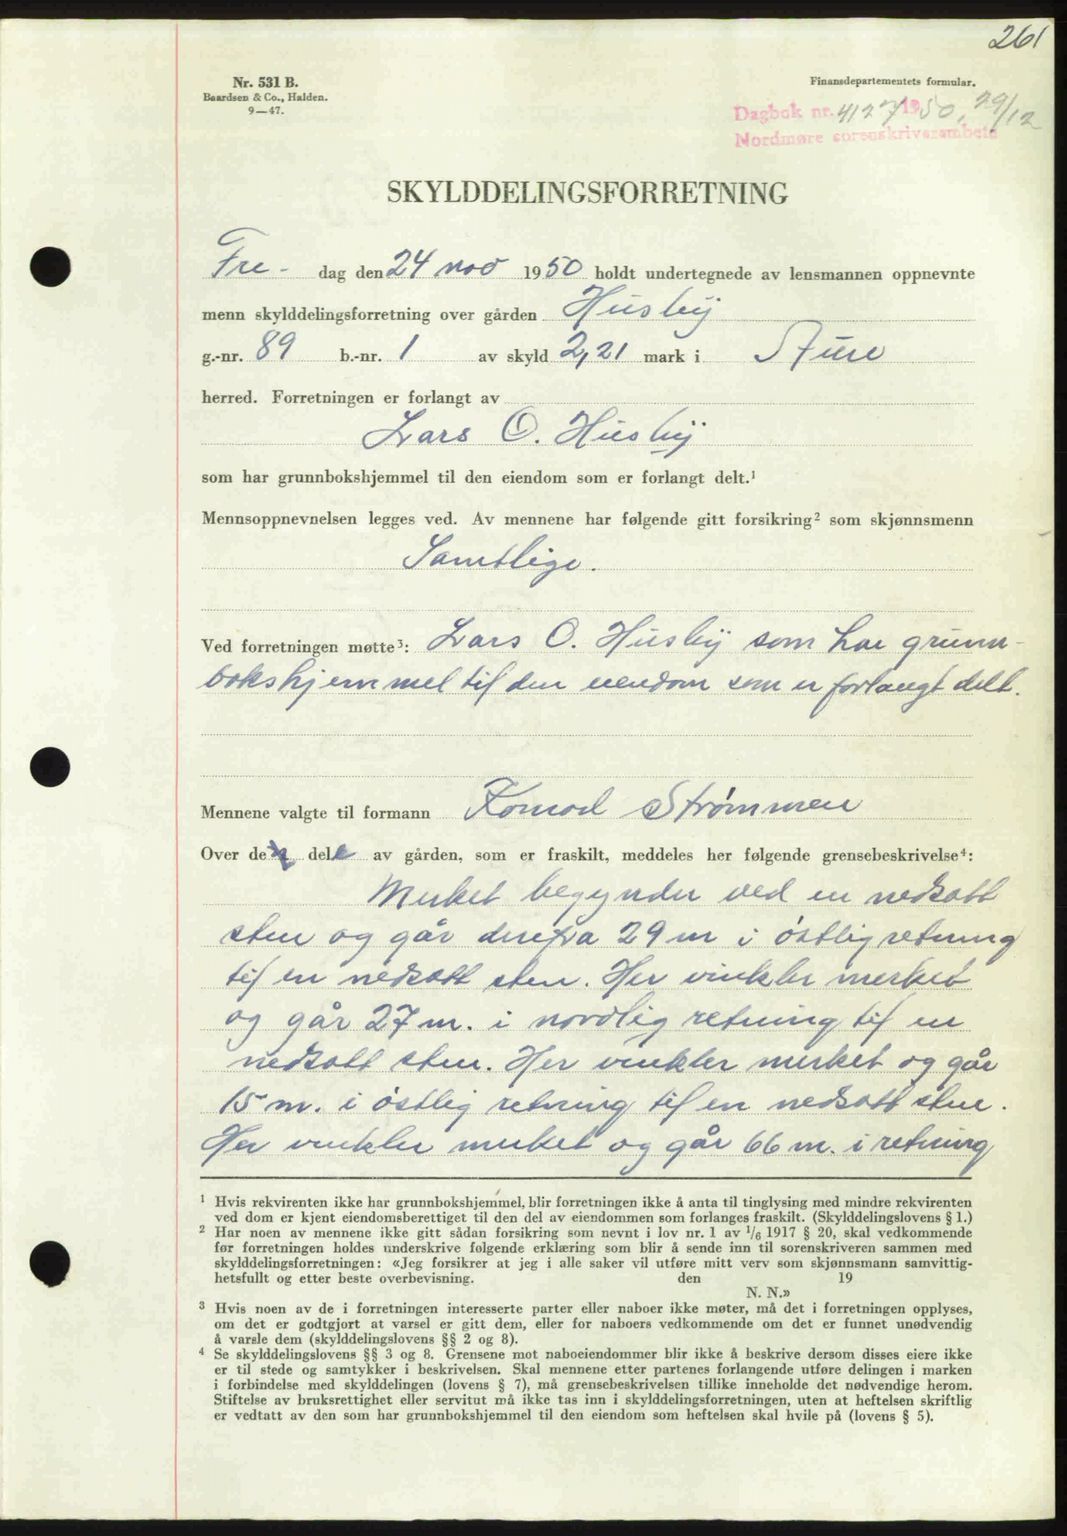 261
Nr. 531 B.
Baardsen & Co., Halden.
9—47.
Finansdepartementets formular.
Dagbok nr. 4127 1950, 29/12
Nordmøre sorenskriverembete
SKYLDDELINGSFORRETNING
Fre- dag den 24 nov 1950 holdt undertegnede av lensmannen oppnevnte
menn skylddelingsforretning over gården Husby
g.-nr. 89 b.-nr. 1 av skyld 2,21 mark i Aure
herred. Forretningen er forlangt av
Lars O. Husby
som har grunnbokshjemmel til den eiendom som er forlangt delt.¹
Mennsoppnevnelsen legges ved. Av mennene har følgende gitt forsikring² som skjønnsmenn
Samtlige.
Ved forretningen møtte³: Lars O. Husby som har grunn-
bokshjemmel til den eiendom som er forlangt delt.
Mennene valgte til formann Konrad Strømmen
Over de dele av gården, som er fraskilt, meddeles her følgende grensebeskrivelse⁴:
Merket begynder ved en nedsatt
sten og går derifra 29 m i östlig retning
til en nedsatt sten. Her vinkler merket
og går 27 m. i nordlig retning til en
nedsatt sten. Her vinkler merket og går
15 m. i östlig retning til en nedsatt sten.
Her vinkler merket og går 66 m. i retning
¹ Hvis rekvirenten ikke har grunnbokshjemmel, blir forretningen ikke å anta til tinglysing med mindre rekvirenten
ved dom er kjent eiendomsberettiget til den del av eiendommen som forlanges fraskilt. (Skylddelingslovens § 1.)
² Har noen av mennene ikke gitt sådan forsikring som nevnt i lov nr. 1 av 1/6 1917 § 20, skal vedkommende
før forretningen holdes underskrive følgende erklæring som blir å sende inn til sorenskriveren sammen med
skylddelingsforretningen: «Jeg forsikrer at jeg i alle saker vil utføre mitt verv som skjønnsmann samvittig-
hetsfullt og etter beste overbevisning. den 19
N. N.»
³ Hvis noen av de i forretningen interesserte parter eller naboer ikke møter, må det i forretningen opplyses,
om det er godtgjort at varsel er gitt dem, eller for naboers vedkommende om det er funnet unødvendig
å varsle dem (skylddelingslovens §§ 2 og 8).
⁴ Se skylddelingslovens §§ 3 og 8. Grensene mot naboeiendommer blir ikke å beskrive dersom disses eiere ikke
er til stede og samtykker i beskrivelsen. Skal mennene etter partenes forlangende utføre delingen i marken
i forbindelse med skylddelingen (lovens § 7), må grensebeskrivelsen tillike inneholde det nødvendige herom.
Stiftelse av bruksrettighet eller servitut må ikke tas inn i skylddelingsforretningen, uten at heftelsen skriftlig
er vedtatt av den som har grunnbokshjemmel til den eiendom som heftelsen skal hvile på (lovens § 5).